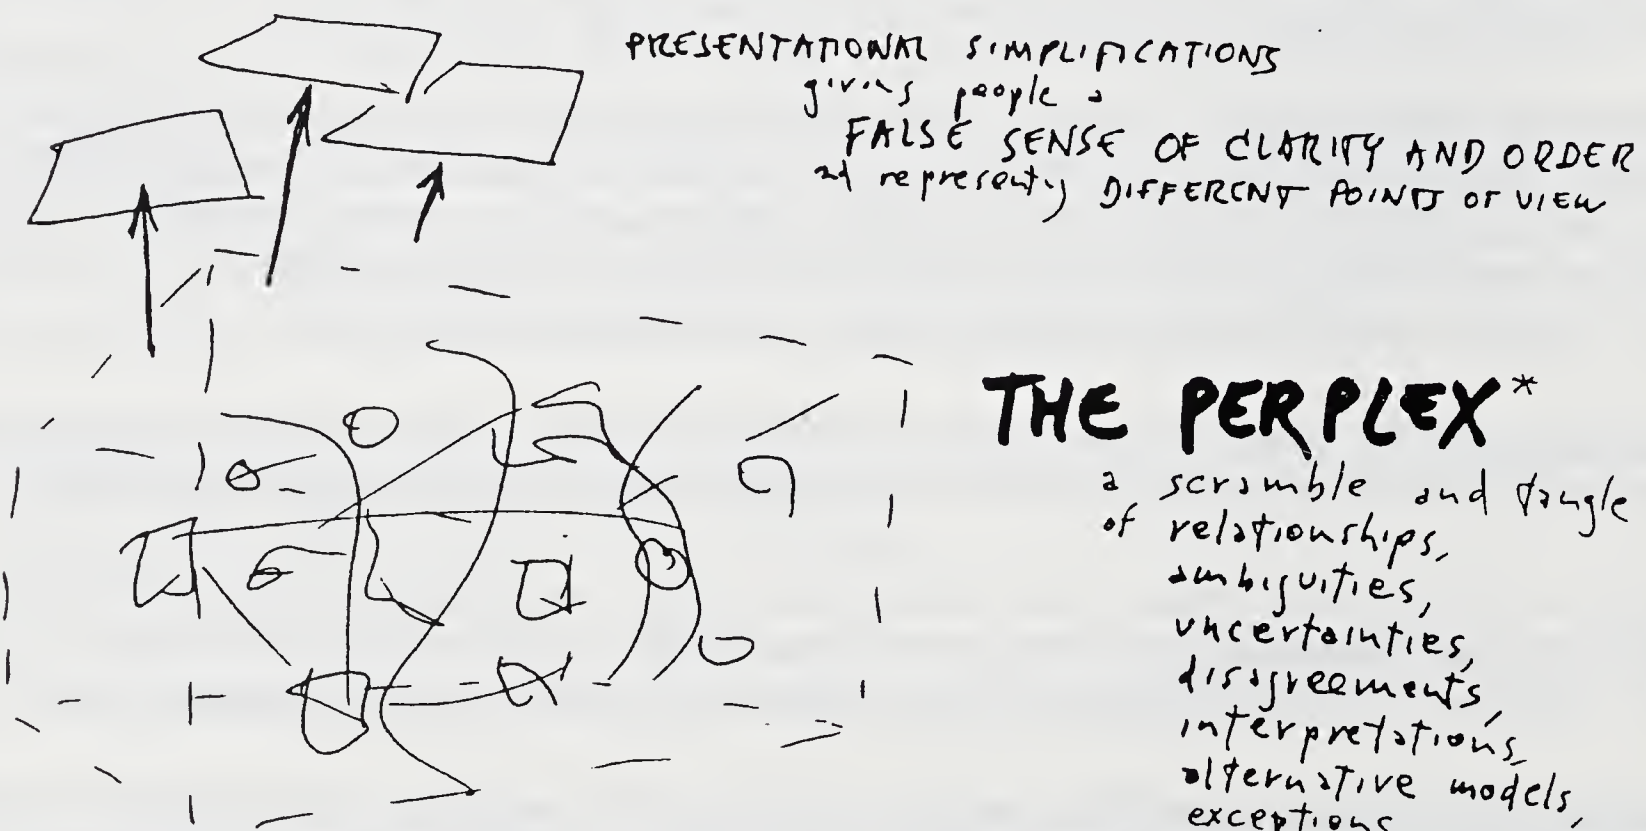 PRESENTATIONAL SIMPLIFICATIONS
giving people a
FALSE SENSE OF CLARITY AND ORDER
and representing DIFFERENT POINTS OF VIEW
THE PERPLEX*
a scramble and tangle
of relationships,
ambiguities,
uncertainties,
disagreements,
interpretations,
alternative models,
exceptions